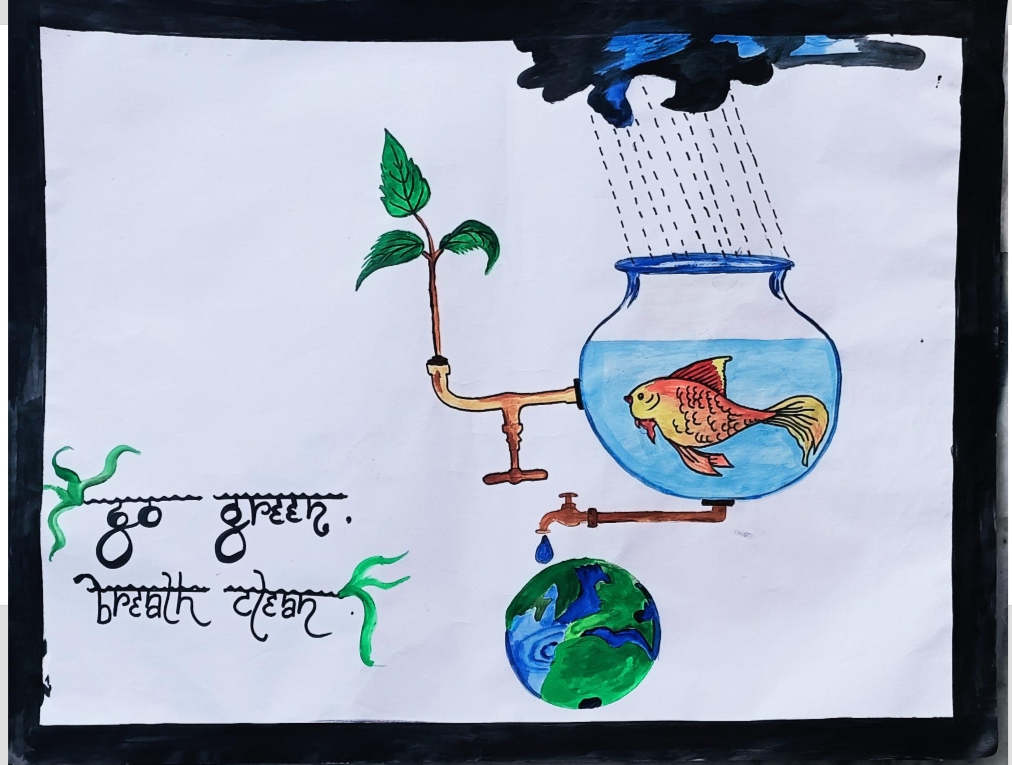 go green.
breath clean.